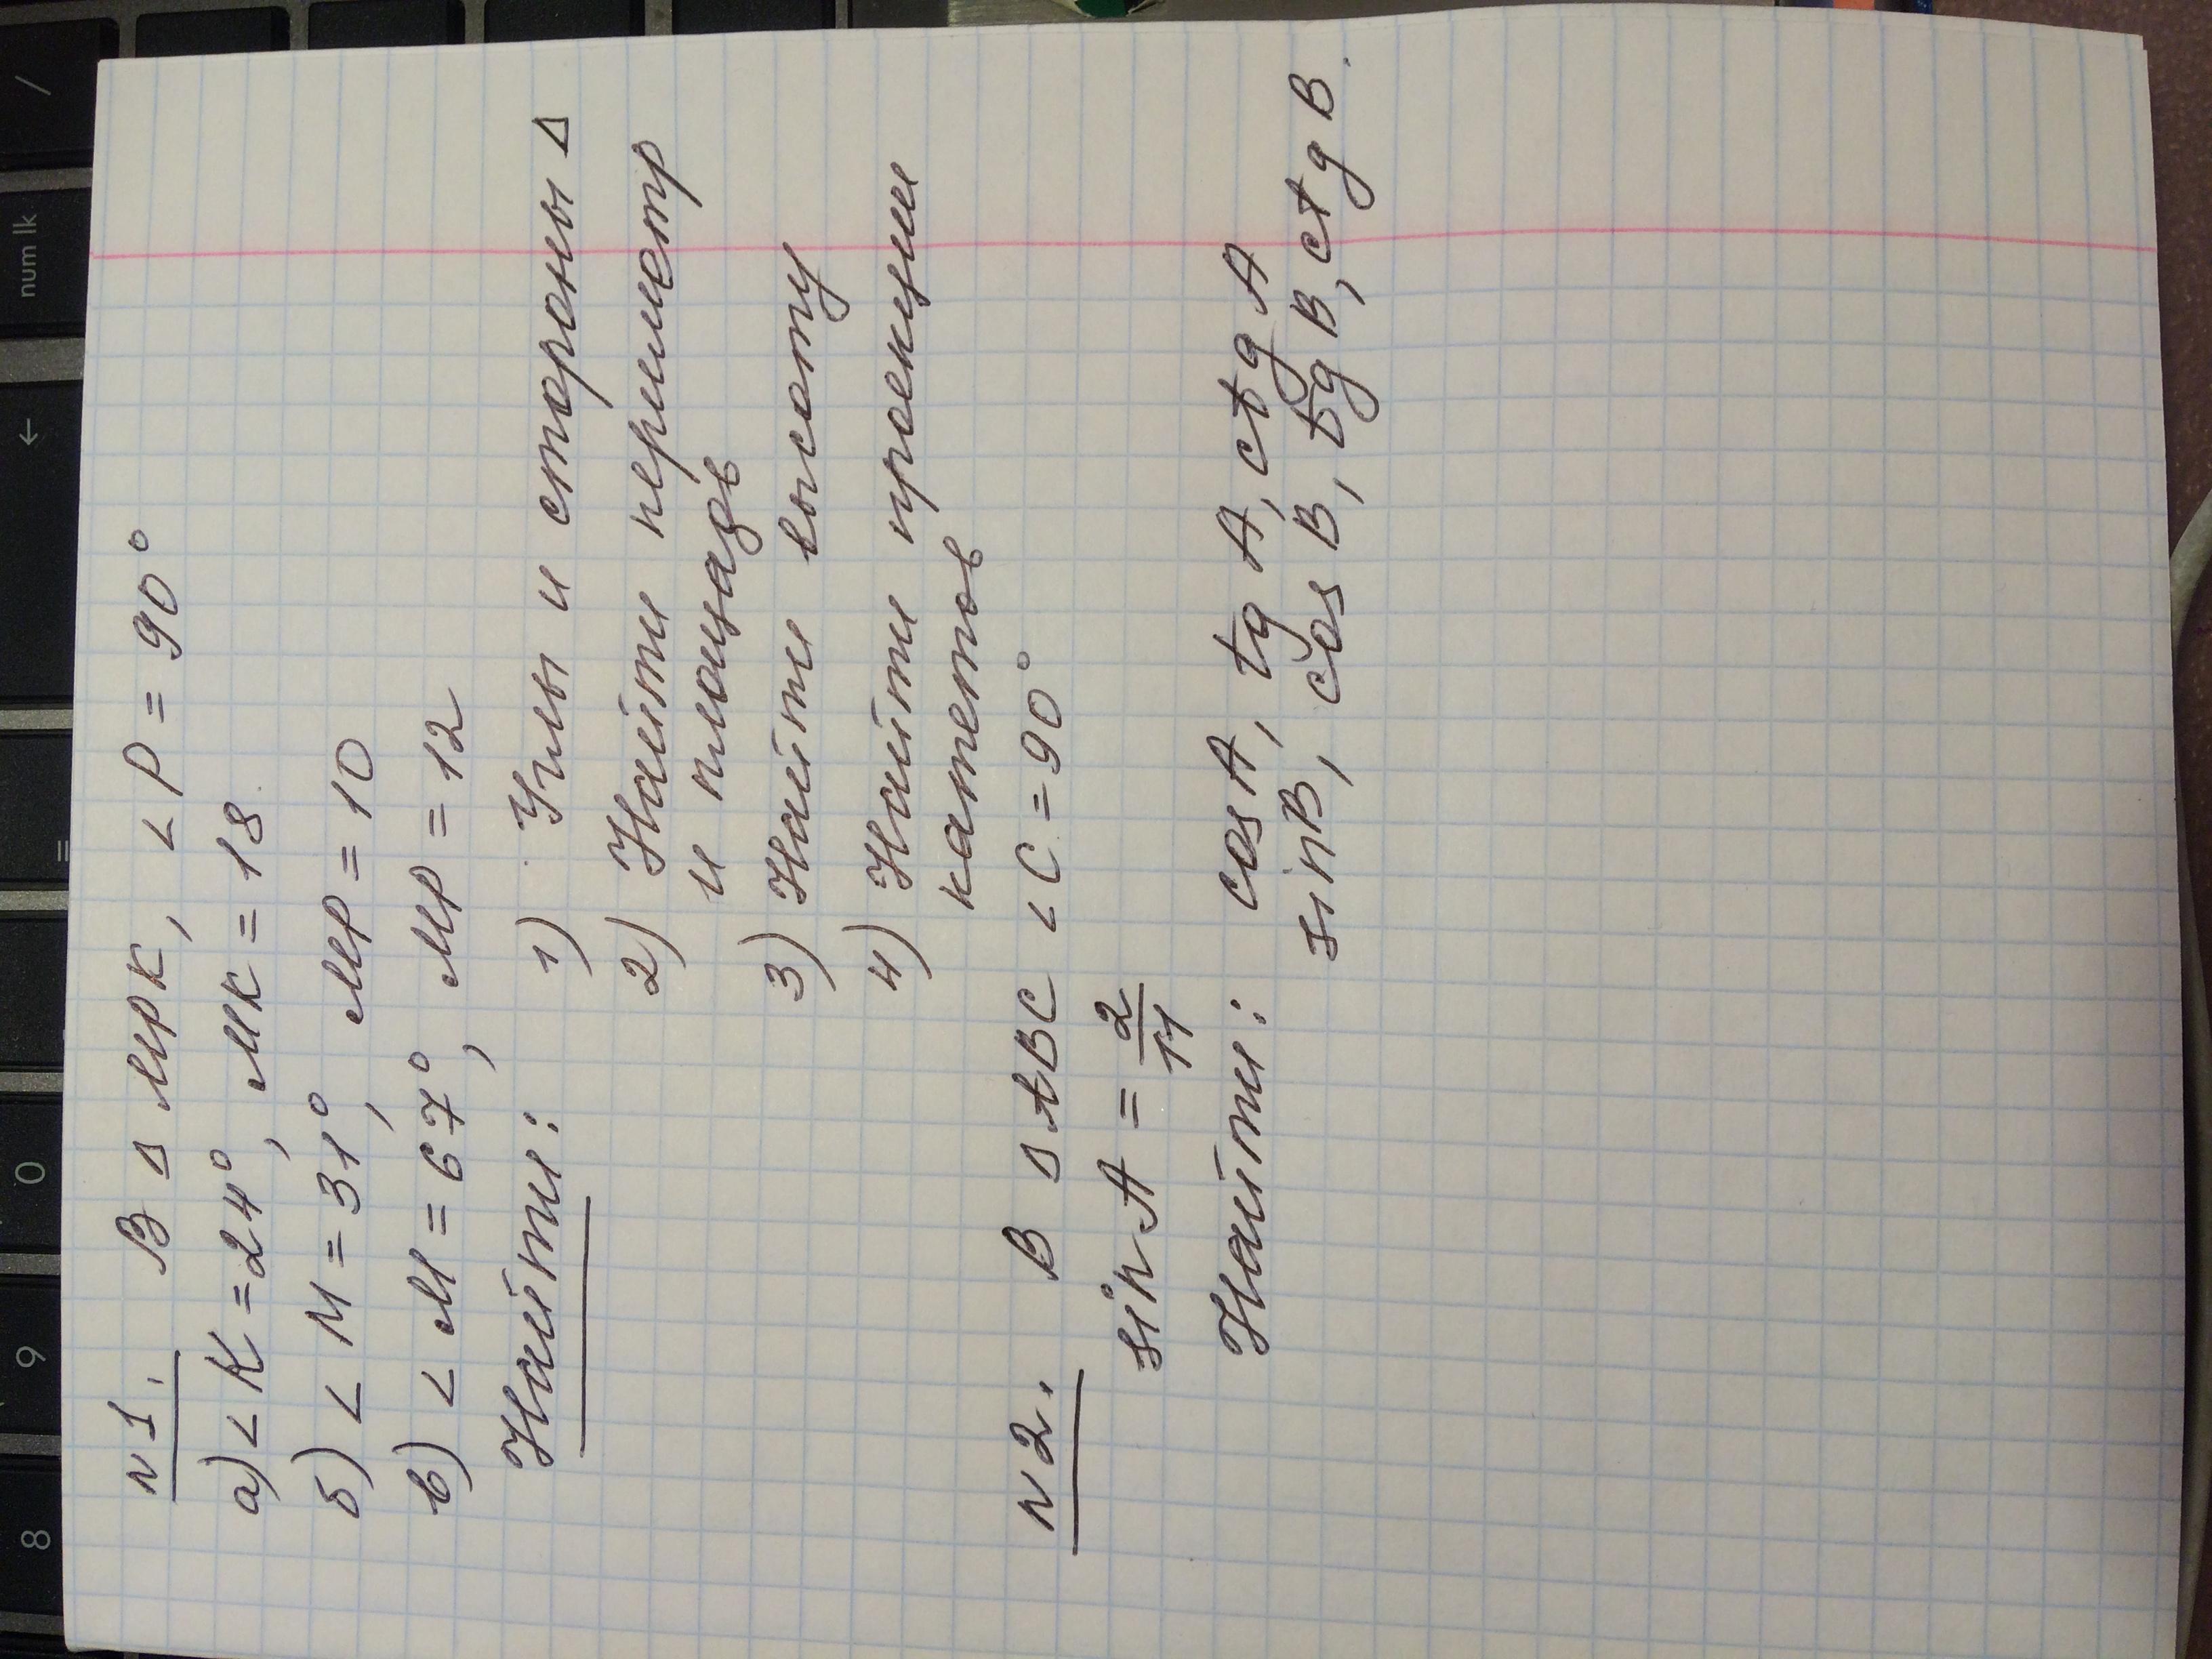 N1. В Δ МРК, ∠P = 90°
а) ∠K = 24°, МК = 18.
б) ∠M = 31°, МР = 10
в) ∠M = 67°, МР = 12
Найти: 1) Углы и стороны Δ
2) Найти периметр
и площадь
3) Найти высоту
4) Найти проекции
катетов
N2. В Δ ABC ∠C = 90°
sin A = 2/17
Найти: cos A, tg A, ctg A
sin B, cos B, tg B, ctg B.
/
num lk
←
=
0
9
8